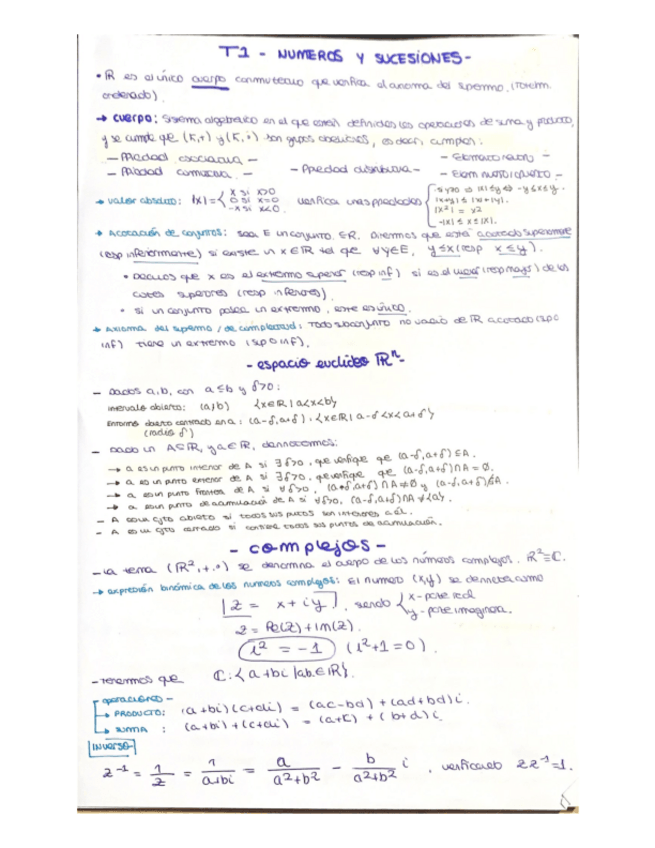 T1 - NUMEROS Y SUCESIONES -
• R es el único cuerpo conmutativo que verifica el axioma del supremo. (Totalm.
ordenado).
→ CUERPO: Sistema algebraico en el que están definidas las operaciones de suma y producto,
y se cumple que (K,+) y (K,·) son grupos abelianos, es decir, cumplen:
— Propiedad asociativa — — Elemento neutro —
— Propiedad conmutativa — — Propiedad distributiva — — Elem. opuesto —
→ Valor absoluto: |x| = { x si x>0 0 si x=0 -x si x<0. verifica unas propiedades { si y>0 ⇒ |x| ≤ y ⇔ -y ≤ x ≤ y.
|x+y| ≤ |x|+|y|.
|x²| = x²
-|x| ≤ x ≤ |x|.
→ Acotación de conjuntos: sea E un conjunto, E⊆R, diremos que está acotado superiormente
(resp inferiormente) si existe un x∈R tal que ∀y∈E, y≤x (resp x≤y).
• Decimos que x es el extremo superior (resp inf) si es el menor (resp mayor) de las
cotas superiores (resp inferiores).
• Si un conjunto posee un extremo, este es único.
→ Axioma del supremo / de completitud: Todo subconjunto no vacío de R acotado (sup o
inf) tiene un extremo (sup o inf).
- espacio euclídeo Rⁿ -
— Dados a,b, con a≤b y δ>0:
Intervalo abierto: (a,b) {x∈R | a<x<b}
Entorno abierto centrado en a: (a-δ, a+δ) = {x∈R | a-δ<x<a+δ}
(radio δ)
— Dado un A⊆R, y a∈R, denotaremos:
→ a es un punto interior de A si ∃δ>0, que verifique que (a-δ,a+δ)⊆A.
→ a es un punto exterior de A si ∃δ>0, que verifique que (a-δ,a+δ)∩A=Ø.
→ a es un punto frontera de A si ∀δ>0, (a-δ,a+δ)∩A≠Ø y (a-δ,a+δ)⊄A.
→ a es un punto de acumulación de A si ∀δ>0, (a-δ,a+δ)∩A≠{a}.
— A es un cjto abierto si todos sus puntos son interiores a él.
— A es un cjto cerrado si contiene todos sus puntos de acumulación.
- complejos -
— La terna (R²,+,·) se denomina el cuerpo de los números complejos. R²≡C.
→ expresión binómica de los números complejos: El numero (x,y) se denota como
z = x+iy, siendo { x - parte real
y - parte imaginaria.
z = Re(z)+Im(z).
i² = -1 (i²+1=0).
— Tenemos que C: {a+bi | a,b∈R}.
operaciones -
→ PRODUCTO: (a+bi)(c+di) = (ac-bd)+(ad+bd)i.
→ SUMA : (a+bi)+(c+di) = (a+c)+(b+d)i.
INVERSO
z⁻¹ = 1/z = 1/(a+bi) = a/(a²+b²) - b/(a²+b²) i, verificando zz⁻¹=1.